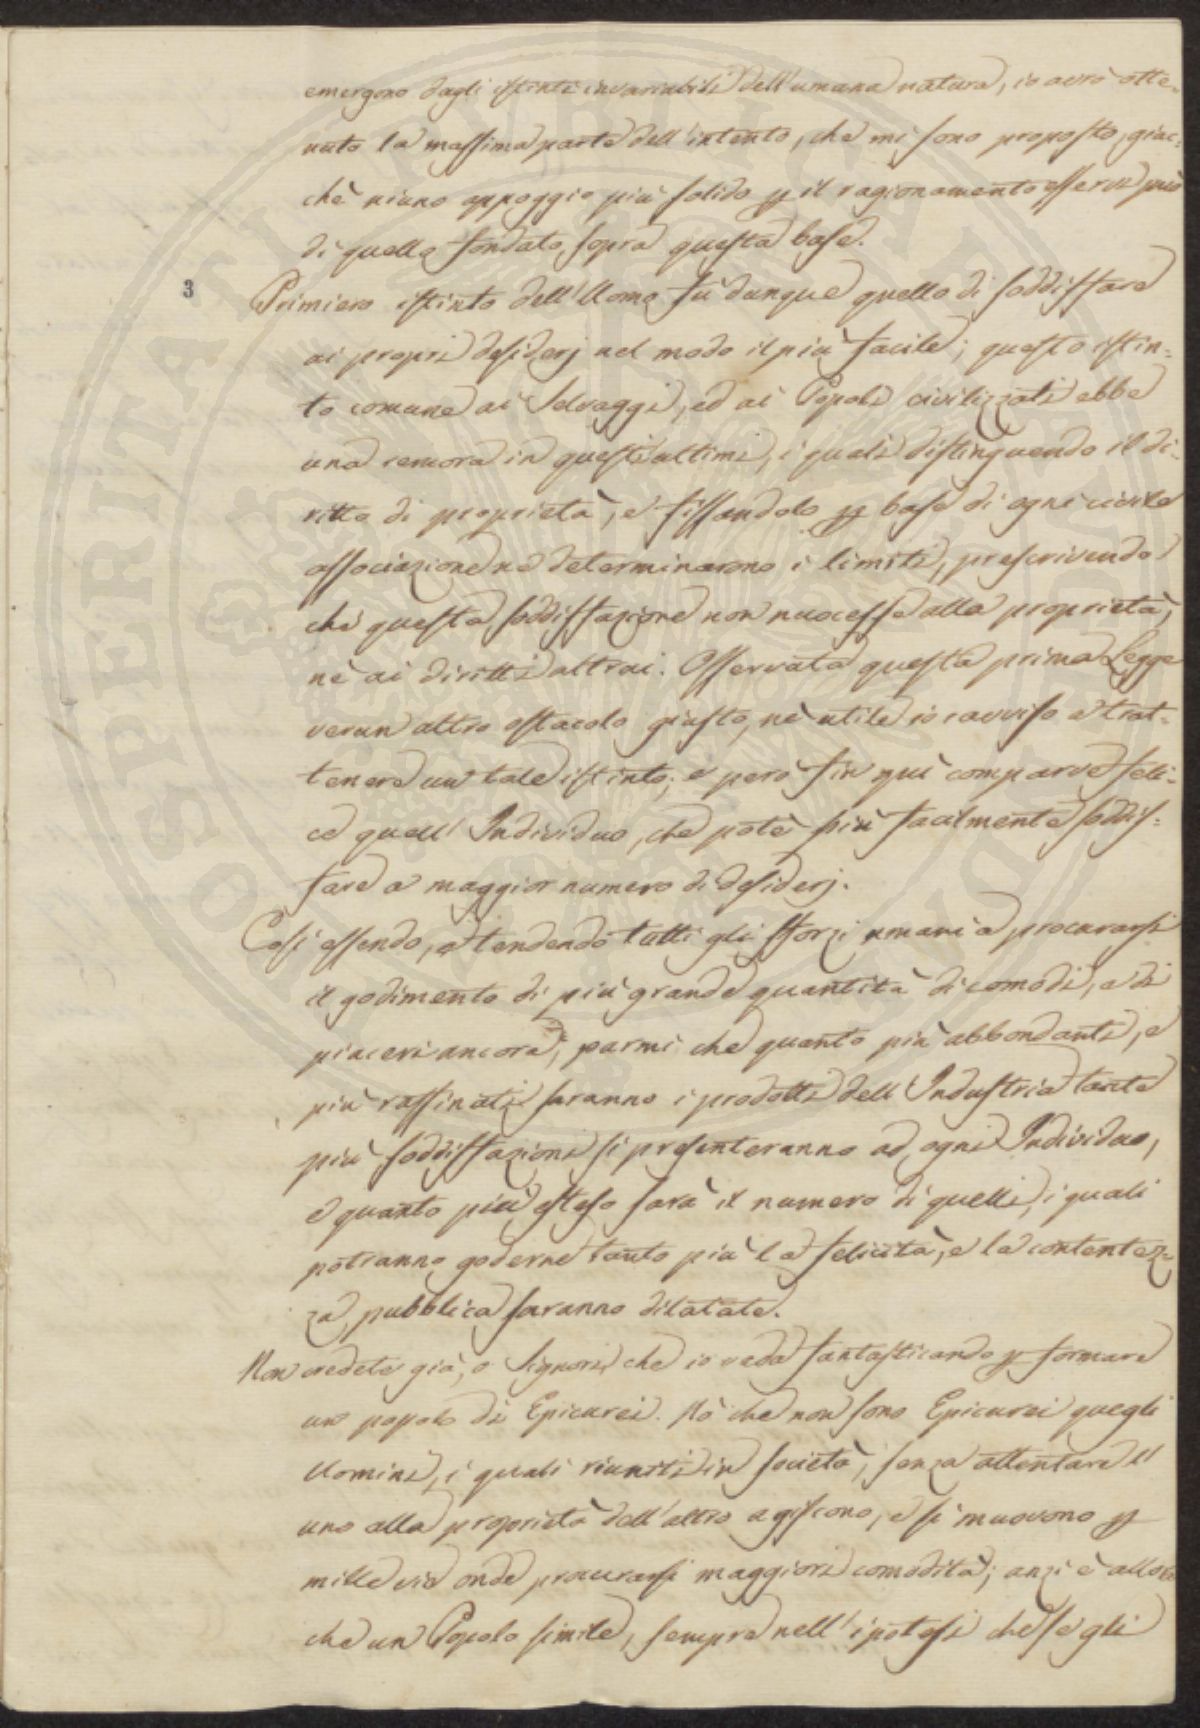 emergono dagli istinti invariabili dell'umana natura, io avrò otte-
nuto la massima parte dell'intento, che mi sono proposto, giac-
chè niuno appoggio più solido p il ragionamento esservi può
di quello fondato sopra questa base.
3
Primiero istinto dell'Uomo fù dunque quello di soddisfare
ai propri desiderj nel modo il più facile; questo istin-
to comune ai Selvaggi, ed ai Popoli civilizzati ebbe
una remora in questi ultimi, i quali distinguendo il di-
ritto di proprietà, e fissandolo p base di ogni civile
associazione ne determinarono i limiti, prescrivendo
che questa soddisfazione non nuocesse alla proprietà,
nè ai diritti altrui. Osservata questa prima Legge
verun altro ostacolo giusto, nè utile io ravviso a trat-
tenere un tale istinto; e però fin quì comparve feli-
ce quell'Individuo, che potè più facilmente soddis-
fare a maggior numero di desiderj.
Così essendo, e tendendo tutti gli sforzi umani a procurarsi
il godimento di più grande quantità di comodi, e di
piaceri ancora, parmi che quanto più abbondanti, e
più raffinati saranno i prodotti dell'Industria tante
più soddisfazioni si presenteranno ad ogni Individuo,
e quanto più esteso sarà il numero di quelli, i quali
potranno goderne tanto più la felicità, e la contentez-
za pubblica saranno dilatate.
Non credete già, o Signori, che io vada fantasticando p formare
un popolo di Epicurei. Nò che non sono Epicurei quegli
Uomini, i quali riuniti in società, senza attentare l'
uno alla proprietà dell'altro agiscono, e si muovono p
mille vie onde procurarsi maggiori comodità; anzi è allora
che un Popolo simile, sempre nell'ipotesi che se gli